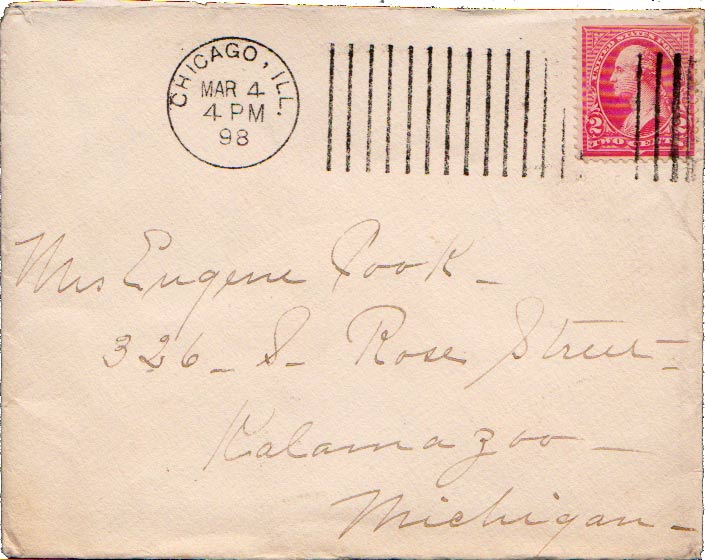 CHICAGO, ILL.
MAR 4
4 PM
98
UNITED STATES POSTAGE
2 2
TWO CENTS
Mrs Eugene Cook -
326 - S - Rose Street -
Kalamazoo -
Michigan -